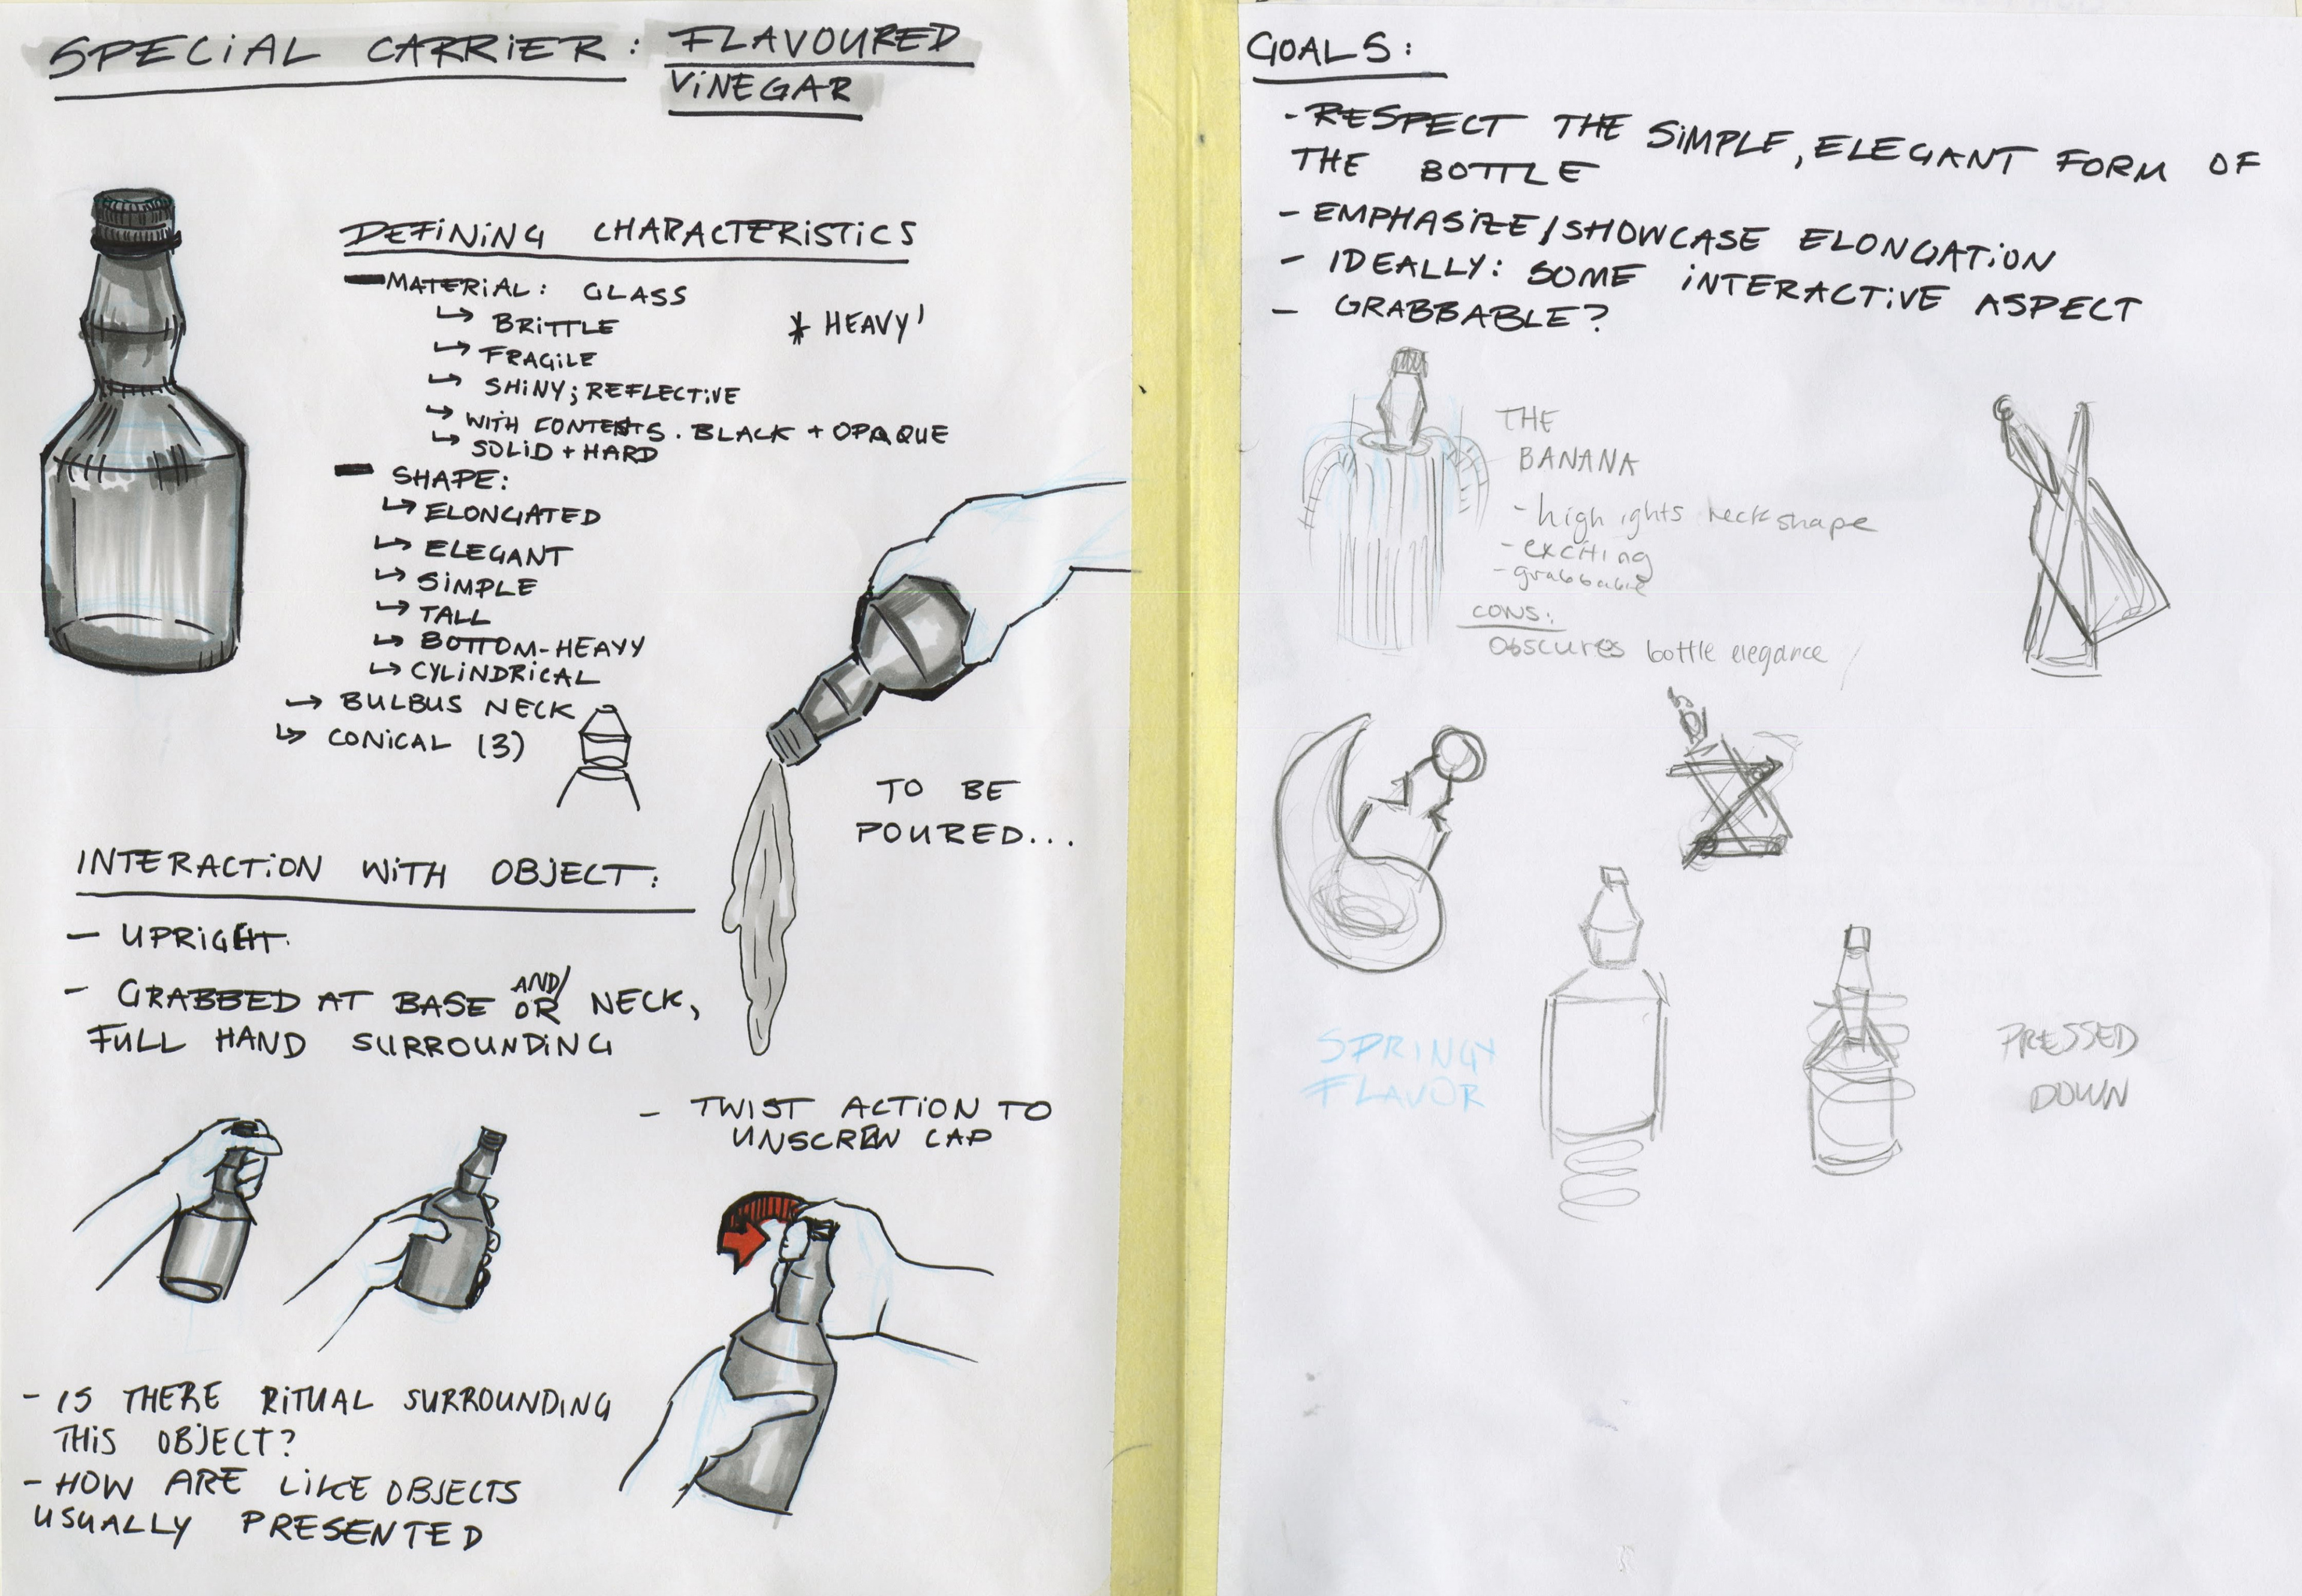 SPECIAL CARRIER: FLAVOURED
VINEGAR
DEFINING CHARACTERISTICS
- MATERIAL: GLASS
↳ BRITTLE
* HEAVY!
↳ FRAGILE
↳ SHINY; REFLECTIVE
↳ WITH CONTENTS. BLACK + OPAQUE
↳ SOLID + HARD
- SHAPE:
↳ ELONGATED
↳ ELEGANT
↳ SIMPLE
↳ TALL
↳ BOTTOM-HEAVY
↳ CYLINDRICAL
↳ BULBUS NECK
↳ CONICAL (3)
TO BE
POURED...
INTERACTION WITH OBJECT:
- UPRIGHT.
- GRABBED AT BASE AND/OR NECK,
FULL HAND SURROUNDING
- TWIST ACTION TO
UNSCREW CAP
- IS THERE RITUAL SURROUNDING
THIS OBJECT?
- HOW ARE LIKE OBJECTS
USUALLY PRESENTED
GOALS:
- RESPECT THE SIMPLE, ELEGANT FORM OF
THE BOTTLE
- EMPHASIZE/SHOWCASE ELONGATION
- IDEALLY: SOME INTERACTIVE ASPECT
- GRABBABLE?
THE
BANANA
- highlights neck shape
- exciting
- grabbable
CONS:
obscures bottle elegance
SPRINGY
FLAVOR
PRESSED
DOWN